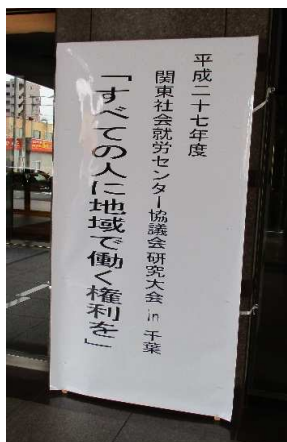 平成二十七年度
関東社会就労センター協議会研究大会 in 千葉
「すべての人に地域で働く権利を」